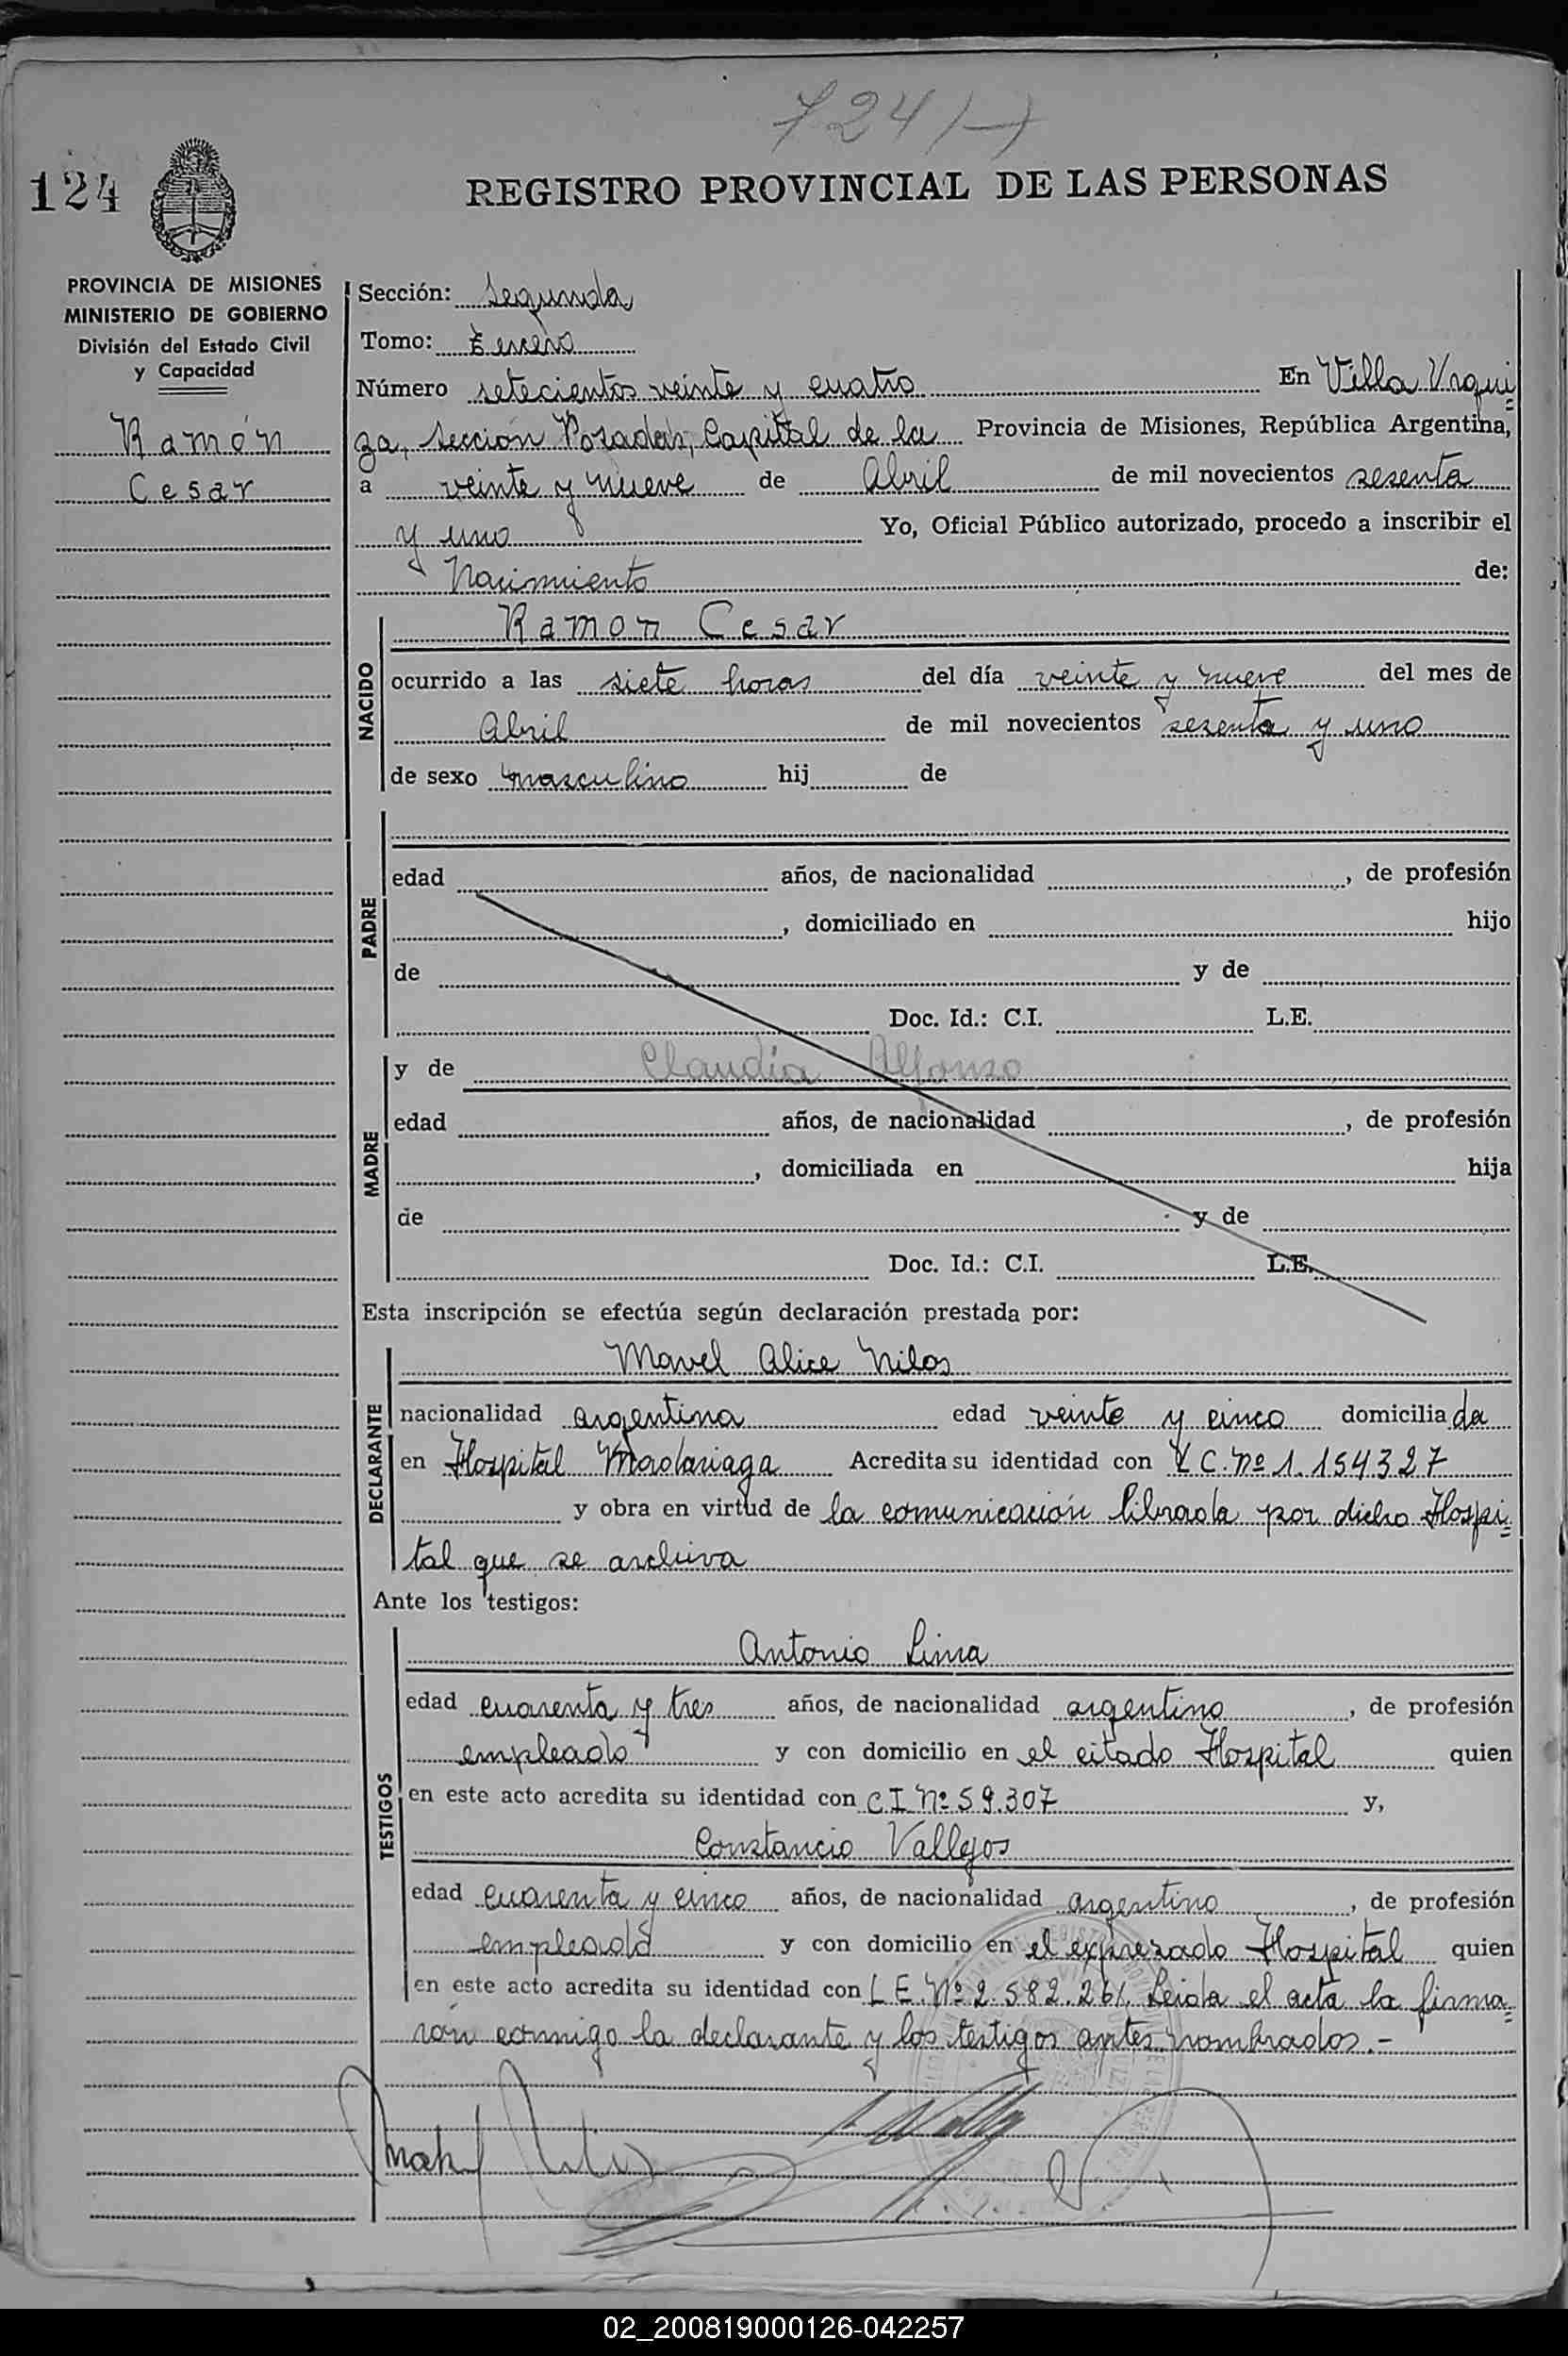 724
124
REGISTRO PROVINCIAL DE LAS PERSONAS
PROVINCIA DE MISIONES
MINISTERIO DE GOBIERNO
División del Estado Civil
y Capacidad
Ramón
Cesar
Sección: Segunda
Tomo: Tercero
Número setecientos veinte y cuatro En Villa Urqui
za, sección Posadas, Capital de la Provincia de Misiones, República Argentina,
a veinte y nueve de Abril de mil novecientos sesenta
y uno Yo, Oficial Público autorizado, procedo a inscribir el
Nacimiento de:
NACIDO
Ramon Cesar
ocurrido a las siete horas del día veinte y nueve del mes de
Abril de mil novecientos sesenta y uno
de sexo masculino hij de
PADRE
edad años, de nacionalidad , de profesión
, domiciliado en hijo
de y de
Doc. Id.: C.I. L.E.
MADRE
y de Claudia Alfonzo
edad años, de nacionalidad , de profesión
, domiciliada en hija
de y de
Doc. Id.: C.I. L.E.
Esta inscripción se efectúa según declaración prestada por:
DECLARANTE
Mavel Alice Nilos
nacionalidad argentina edad veinte y cinco domiciliada
en Hospital Madariaga Acredita su identidad con L C. Nº 1.154327
y obra en virtud de la comunicación librada por dicho Hospi
tal que se archiva
Ante los testigos:
TESTIGOS
Antonio Lima
edad cuarenta y tres años, de nacionalidad argentino, de profesión
empleado y con domicilio en el citado Hospital quien
en este acto acredita su identidad con C I Nº 59.307 y,
Constancio Vallejos
edad cuarenta y cinco años, de nacionalidad argentino, de profesión
empleado y con domicilio en el expresado Hospital quien
en este acto acredita su identidad con L E. Nº 2.582.261. Leida el acta la firma
rón conmigo la declarante y los testigos antes nombrados.-
02_200819000126-042257